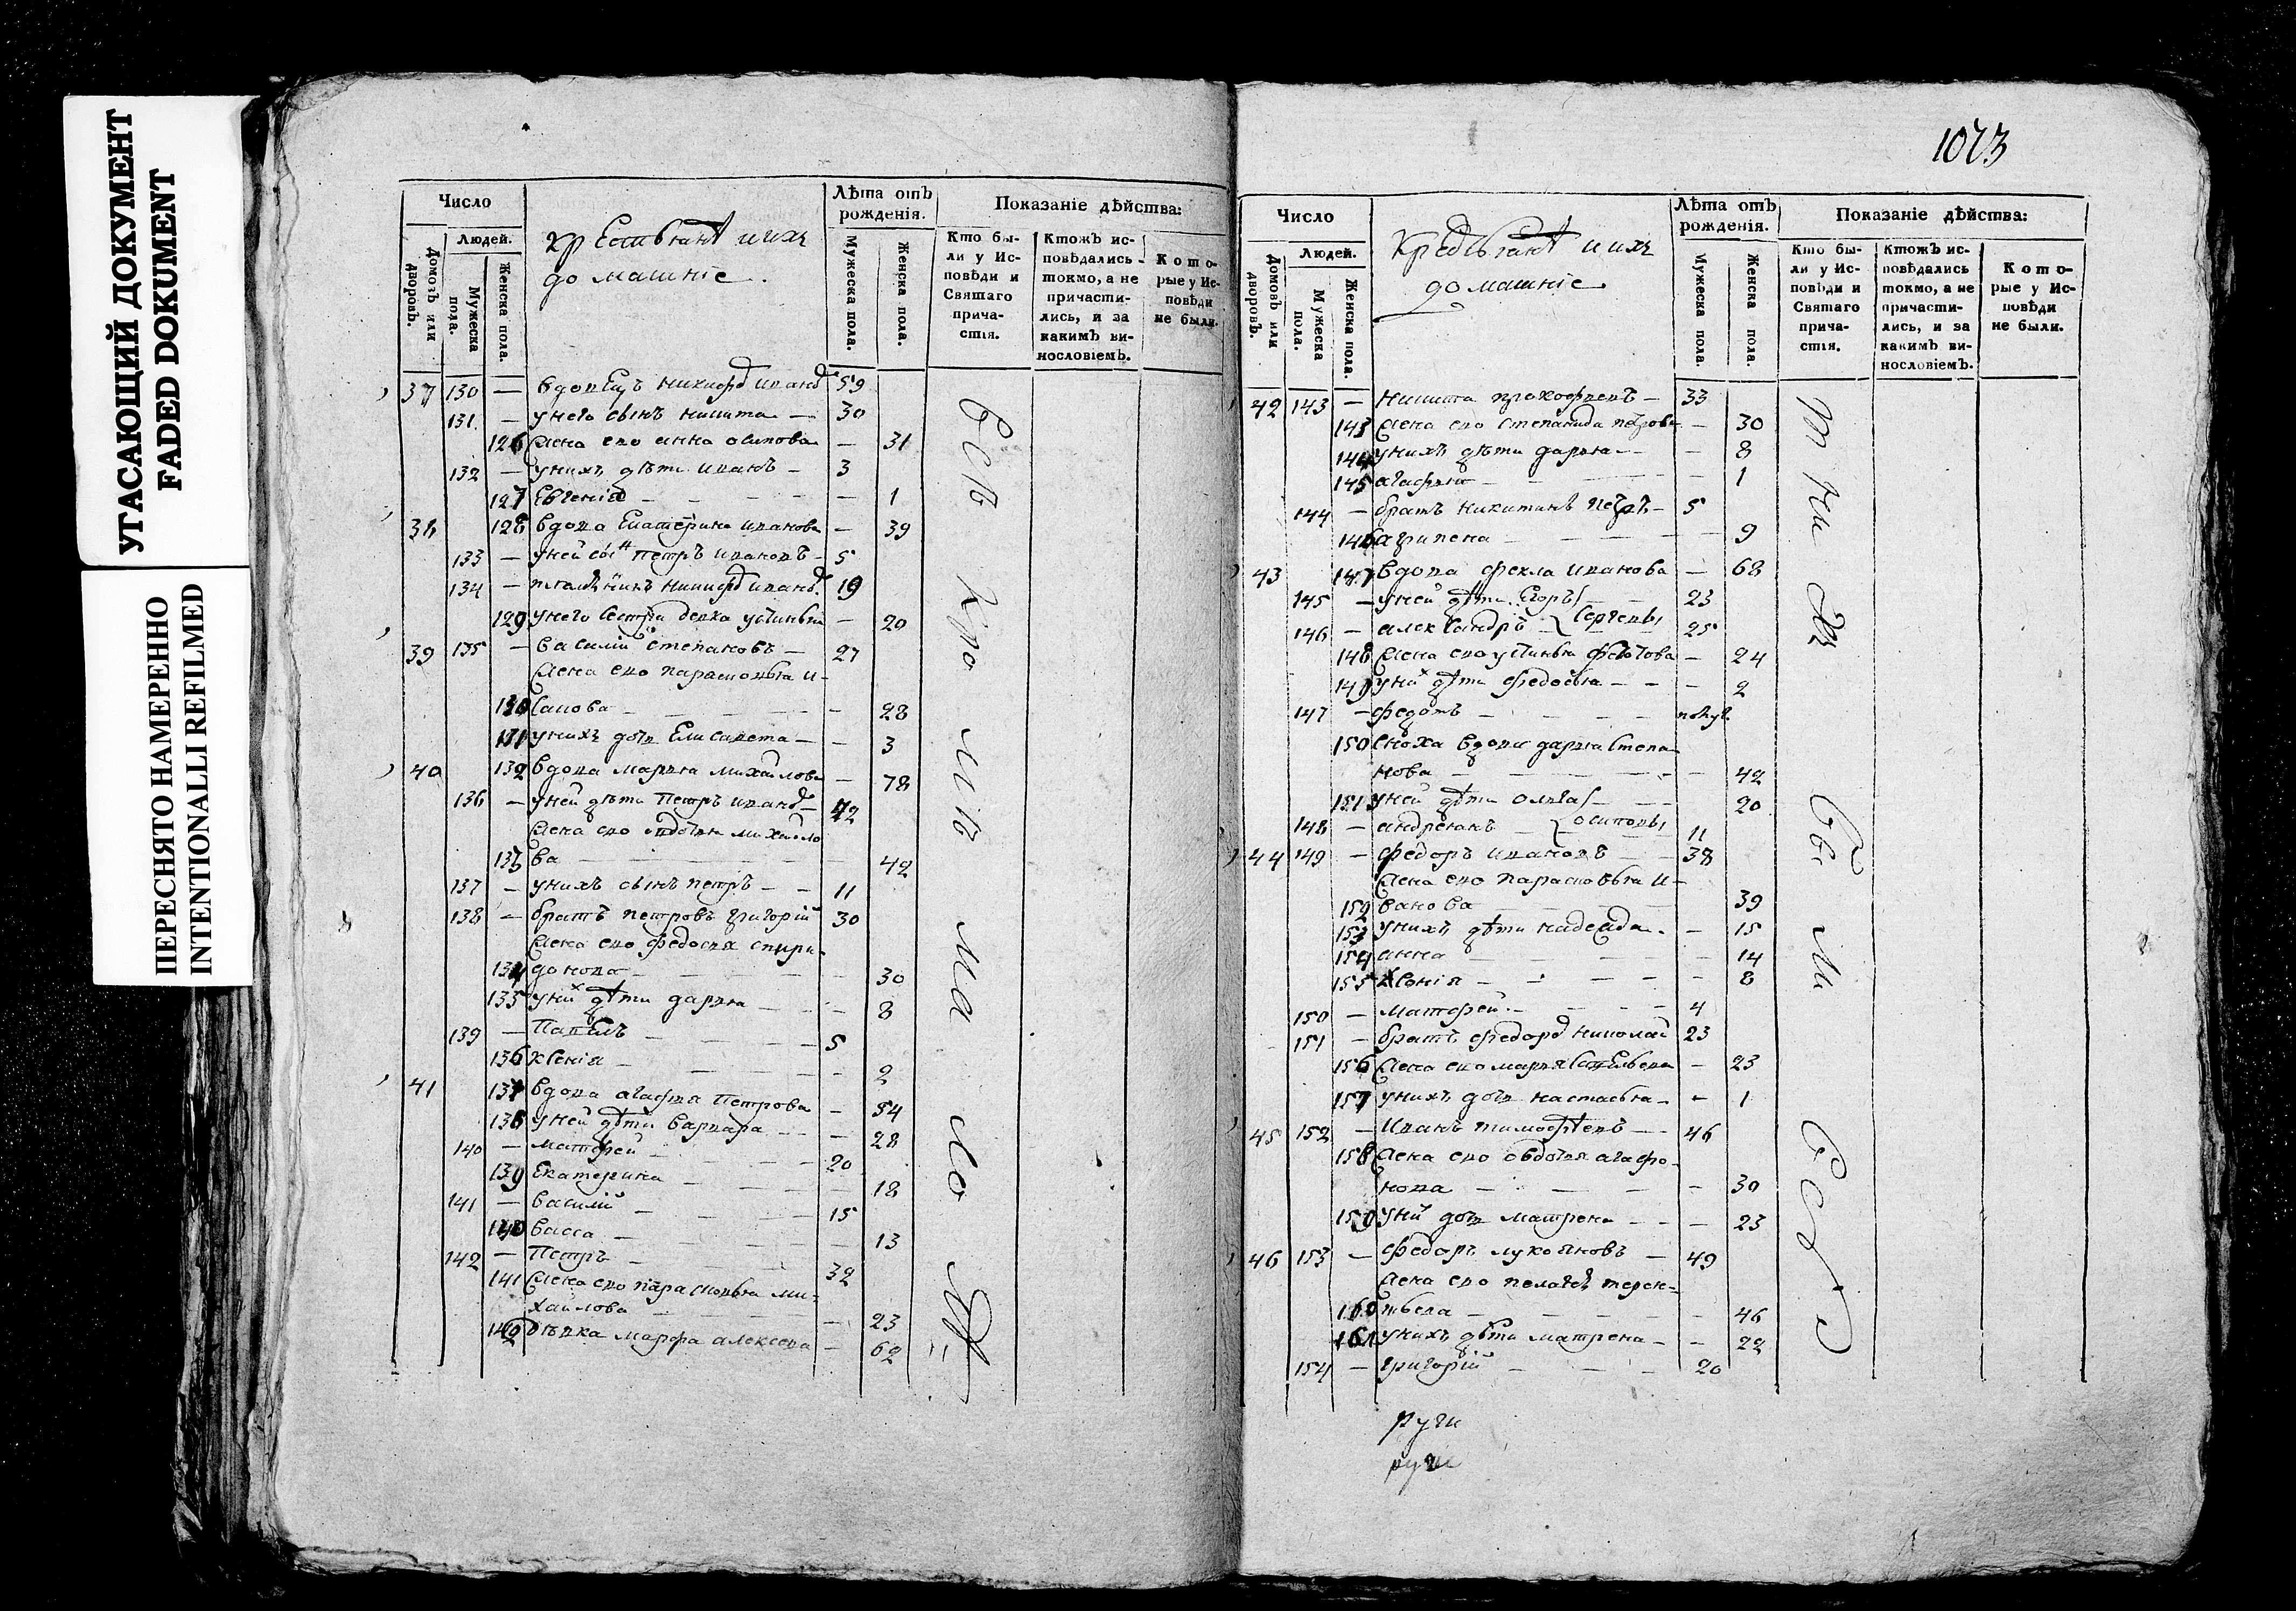 УГАСАЮЩИЙ ДОКУМЕНТ
FADED DOKUMENT
ПЕРЕСНЯТО НАМЕРЕННО
INTENTIONALLI REFILMED
Число
Людей.
Домовъ или дворовъ.
Мужеска пола.
Женска пола.
крестьянѣ и ихъ
домашніе.
Лѣта отъ рожденія.
Мужеска пола.
Женска пола.
Показаніе дѣйства:
Кто были у Исповѣди и Святаго причастія.
Ктожъ исповѣдались токмо, а не причастились, и за какимъ винословіемъ.
Которые у Исповѣди не были.
37 130 — вдовецъ никифоръ иванов 59
131 — у него сынъ никита — 30
126 жена ево анна осипова — 31
132 — у нихъ дѣти иванъ — 3
127 Евгенія — 1
38 128 вдова Екатерина иванова — 39
133 — у ней сынъ петръ ивановъ — 5
134 — племянникъ никифоръ иванов 19
129 у него сестра девка устинья — 20
39 135 — василий степановъ — 27
жена ево парасковья и-
130 савова — 28
131 у нихъ дочь Елисавета — 3
40 132 вдова марья михайлова — 78
136 — у ней дѣти Петръ иванов — 42
жена ево авдотья михайло
133 ва — 42
137 — у нихъ сынъ петръ — 11
138 — братъ петровъ григорій 30
жена ево федосья спири-
134 донова — 30
135 у них дѣти дарья — 8
139 — Павелъ — 5
136 Ксенія — 2
41 137 вдова агафья Петрова — 54
138 у ней дѣти варвара — 28
140 — матфей — 20
139 Екатерина — 18
141 — василій — 15
140 васса — 13
142 — Петръ — 32
141 жена ево парасковья ми-
хайлова — 23
142 дѣвка марфа алексеева — 62
1073
Число
Людей.
Домовъ или дворовъ.
Мужеска пола.
Женска пола.
крестьянѣ и ихъ
домашніе
Лѣта отъ рожденія.
Мужеска пола
Женска пола.
Показаніе дѣйства:
Кто были у Исповѣди и Святаго причастія.
Ктожъ исповѣдались токмо, а не причастились, и за какимъ винословіемъ.
Которые у Исповѣди не были.
42 143 — никита прокофьевъ — 33
143 жена ево степанида петрова — 30
144 у нихъ дѣти дарья — 8
145 агафья — 1
144 — братъ никитинъ петръ — 5
146 агрипена — 9
43 147 вдова фекла иванова — 68
145 — у ней дѣти Егоръ — 23
146 — александръ сергеевы 25
148 жена ево устинья федотова — 24
149 у них дѣти федосья — 2
147 — федотъ — полуг.
150 сноха вдова дарья степа
нова — 42
151 у ней дѣти олга — 20
148 — андреянъ осиповы 11
44 149 — федоръ ивановъ — 38
жена ево парасковья и-
152 ванова 39
153 у нихъ дѣти надежда — 15
154 анна — 14
155 Ксенія — 8
150 — матфей — 4
151 — братъ федоров николай 23
156 жена ево марья савельева — 23
157 у нихъ дочь настасья — 1
45 152 — Иванъ тимофѣевъ — 46
158 жена ево овдотья агафо-
нова — 30
159 у них дочь матрена — 23
46 153 — федоръ лукояновъ — 49
жена ево пелагея терен-
160 тьева — 46
161 у нихъ дѣти матрена — 22
154 — григорій — 20
руги
руги